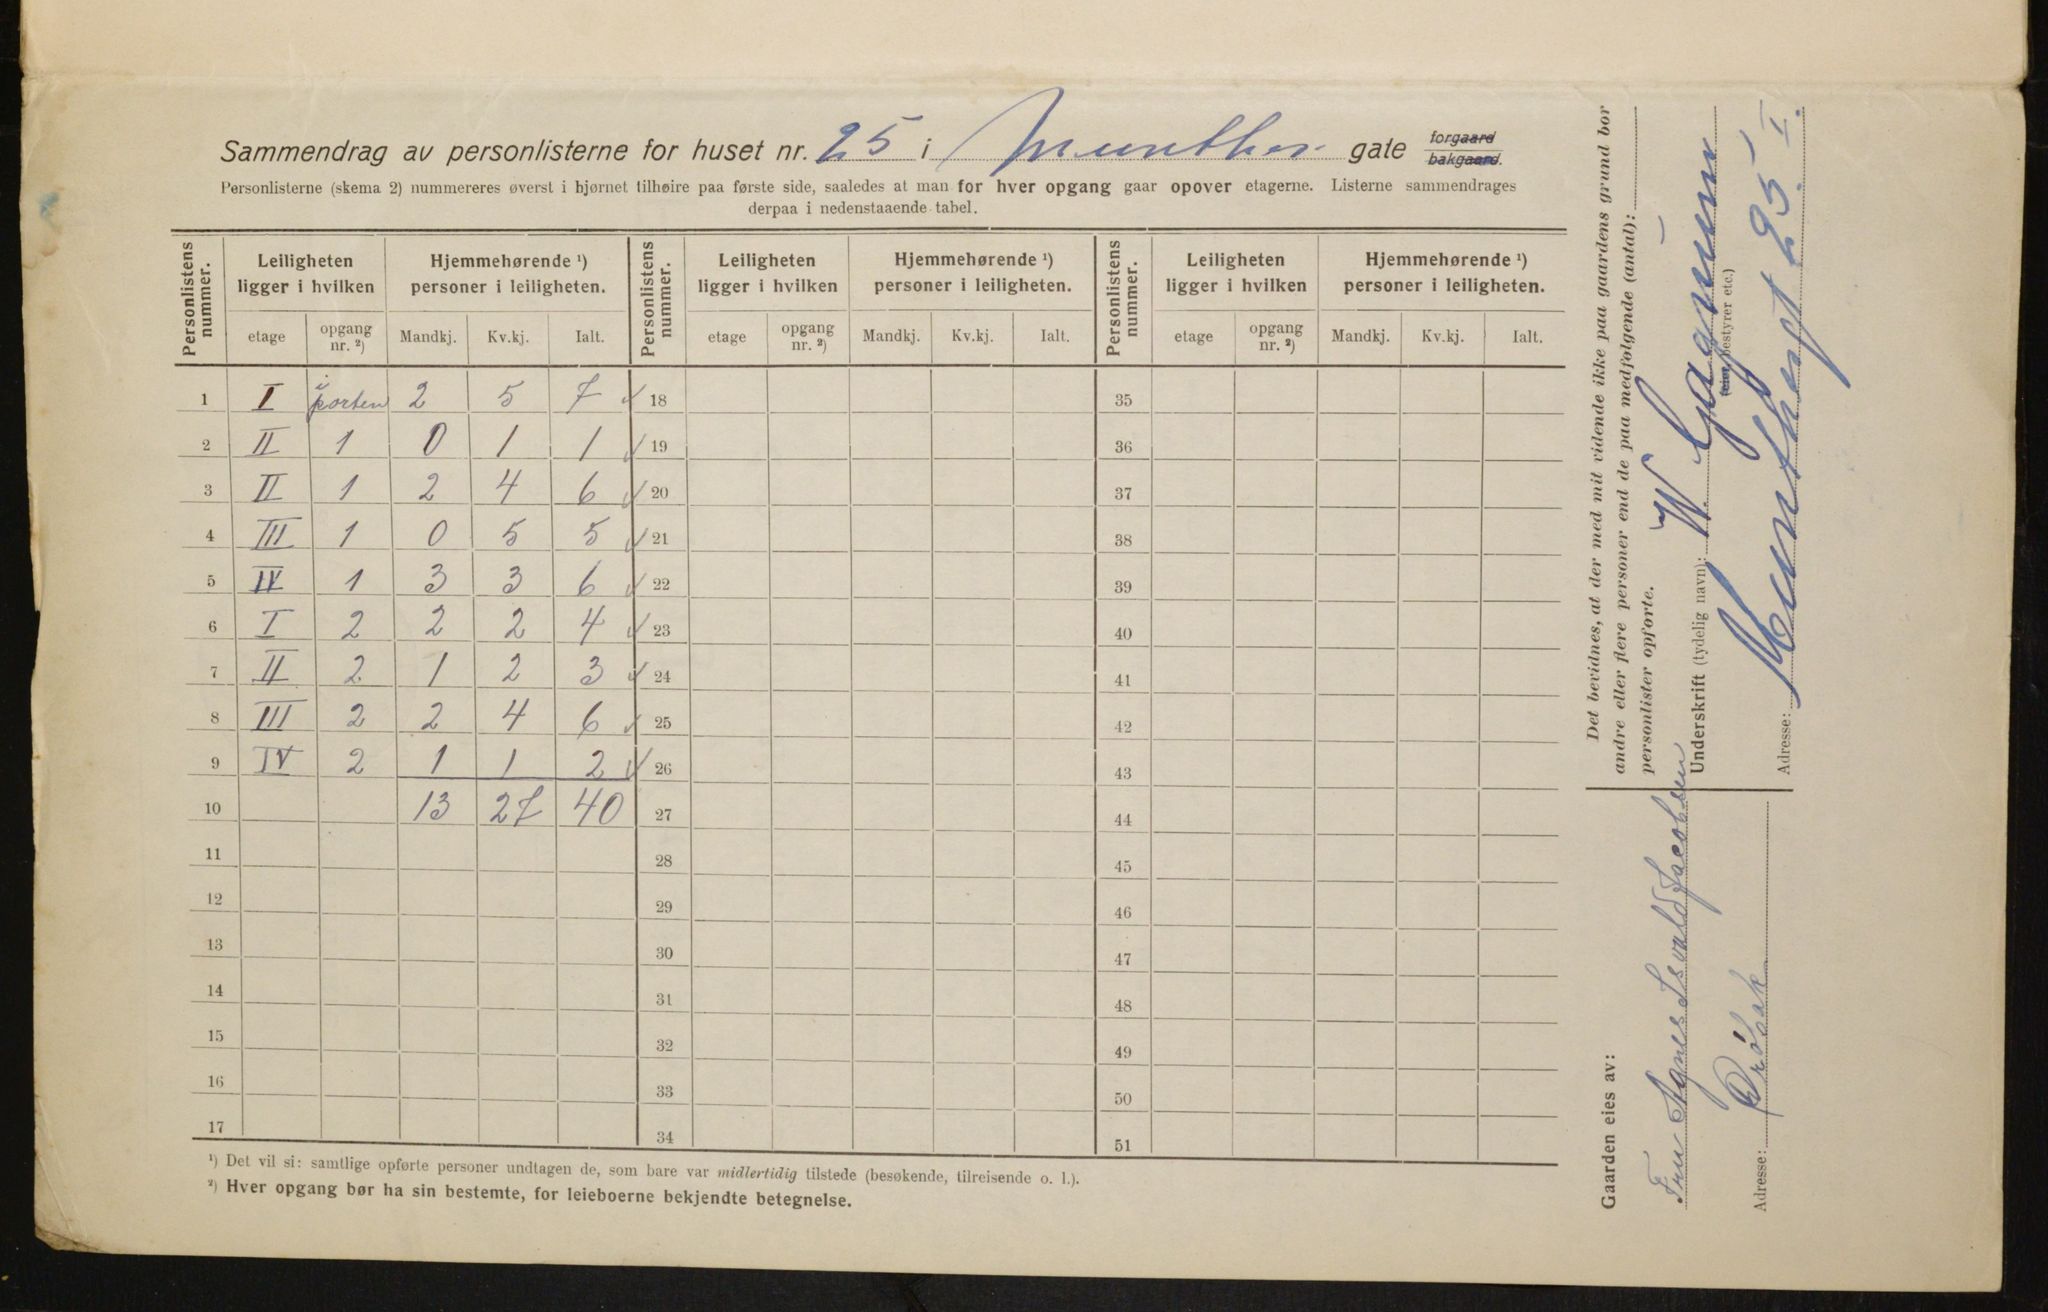 Sammendrag av personlisterne for huset nr. 25 i Munthes gate forgaard bakgaard.
Personlisterne (skema 2) nummereres øverst i hjørnet tilhøire paa første side, saaledes at man for hver opgang gaar opover etagerne. Listerne sammendrages
derpaa i nedenstaaende tabel.
Personlistens nummer. Leiligheten ligger i hvilken Hjemmehørende ¹) personer i leiligheten. Personlistens nummer. Leiligheten ligger i hvilken Hjemmehørende ¹) personer i leiligheten. Personlistens nummer. Leiligheten ligger i hvilken Hjemmehørende ¹) personer i leiligheten.
etage opgang nr. ²) Mandkj. Kv.kj. Ialt. etage opgang nr. ²) Mandkj. Kv.kj. Ialt. etage opgang nr. ²) Mandkj. Kv.kj. Ialt.
1 I i porten 2 5 7 ✓ 18 35
2 II 1 0 1 1 ✓ 19 36
3 II 1 2 4 6 ✓ 20 37
4 III 1 0 5 5 ✓ 21 38
5 IV 1 3 3 6 ✓ 22 39
6 I 2 2 2 4 ✓ 23 40
7 II 2 1 2 3 ✓ 24 41
8 III 2 2 4 6 ✓ 25 42
9 IV 2 1 1 2 ✓ 26 43
10 13 27 40 27 44
11 28 45
12 29 46
13 30 47
14 31 48
15 32 49
16 33 50
17 34 51
¹) Det vil si: samtlige opførte personer undtagen de, som bare var midlertidig tilstede (besøkende, tilreisende o. l.).
²) Hver opgang bør ha sin bestemte, for leieboerne bekjendte betegnelse.
Det bevidnes, at der med mit vidende ikke paa gaardens grund bor
andre eller flere personer end de paa medfølgende (antal): —
personlister opførte.
Underskrift (tydelig navn): W Gagnum
(eier, bestyrer etc.)
Adresse: Munthesgt 25 I.
Gaarden eies av:
Fru Agnes Isvald Jacobsen
Adresse: Drøbak